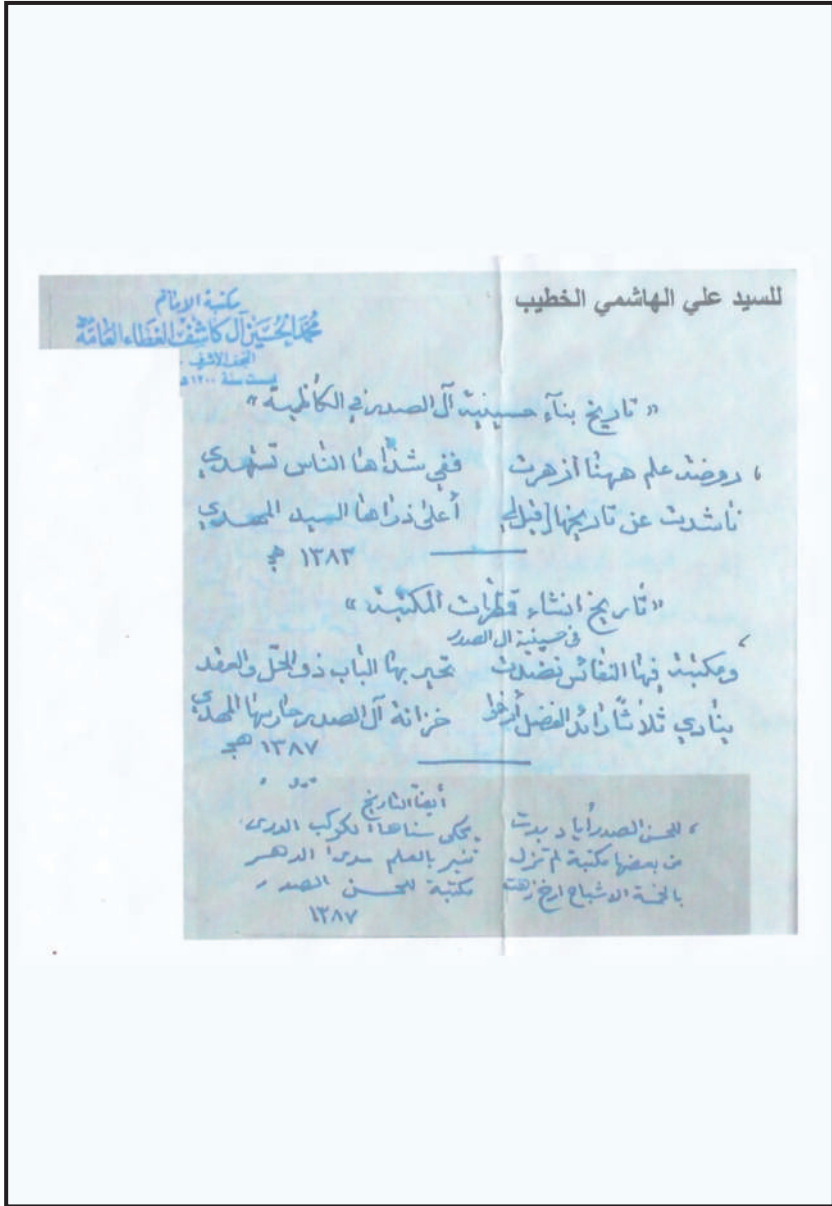 للسيد علي الهاشمي الخطيب
مكتبة الامام
محمد الحسين آل كاشف الغطاء العامة
النجف الاشرف
سنة ١٣٠٠ هـ
« تاريخ بناء حسينية آل الصدر في الكاظمية »
روضة علم ههنا أزهرت ففي شذاها الناس تستهدي
ناشدت عن تاريخها قيل لي أعلى ذراها السيد المهدي
١٣٨٣ هج
« تاريخ انشاء المكتبة »
في حسينية ال الصدر
ومكتبة فيها النفائس نضدت تحير بها الباب ذو الحل والعقد
ينادي ثلاثاً رائد الفضل أرخوا خزانة آل الصدر المهدي
١٣٨٧ هج
أيضاً التاريخ
للحسن الصدر أياد بدت يحكي سناها الكوكب الدري
من بعضها مكتبة لم تزل تنير بالعلم مدى الدهر
بالخمسة الاشباح ارخ زهت مكتبة للحسن الصدر
١٣٨٧